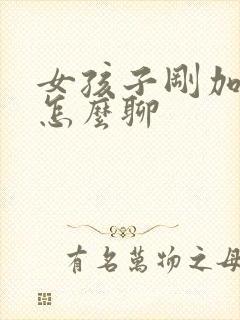 女孩子剛加
怎麼聊
有名萬物之母